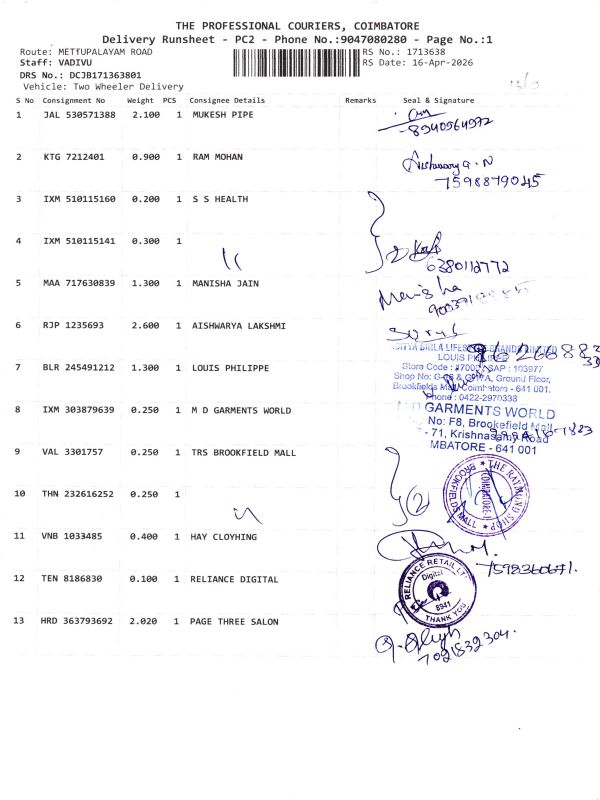 THE PROFESSIONAL COURIERS, COIMBATORE
Delivery Runsheet - PC2 - Phone No.:9047080280 - Page No.:1
Route: METTUPALAYAM ROAD RS No.: 1713638
Staff: VADIVU RS Date: 16-Apr-2026
DRS No.: DCJB171363801
Vehicle: Two Wheeler Delivery
S No Consignment No Weight PCS Consignee Details Remarks Seal & Signature
1 JAL 530571388 2.100 1 MUKESH PIPE
8940964972
2 KTG 7212401 0.900 1 RAM MOHAN Aishwarya.N
7598879045
3 IXM 510115160 0.200 1 S S HEALTH
4 IXM 510115141 0.300 1
6380112772
5 MAA 717630839 1.300 1 MANISHA JAIN Manisha
6 RJP 1235693 2.600 1 AISHWARYA LAKSHMI
LOUIS PHILIPPE
7 BLR 245491212 1.300 1 LOUIS PHILIPPE
Ground Floor,
Brookfields Mall, Coimbatore - 641 001.
Phone : 0422-2970338
8 IXM 303879639 0.250 1 M D GARMENTS WORLD
M D GARMENTS WORLD
No: F8, Brookefield Mall
- 71, Krishnasamy Road
MBATORE - 641 001
9 VAL 3301757 0.250 1 TRS BROOKFIELD MALL
THE RAYMOND SHOP
BROOKFIELDS MALL
10 THN 232616252 0.250 1 2
11 VNB 1033485 0.400 1 HAY CLOYHING
7598360671.
12 TEN 8186830 0.100 1 RELIANCE DIGITAL
RELIANCE RETAIL LTD
Digital
8941
THANK YOU
13 HRD 363793692 2.020 1 PAGE THREE SALON
7021832304.